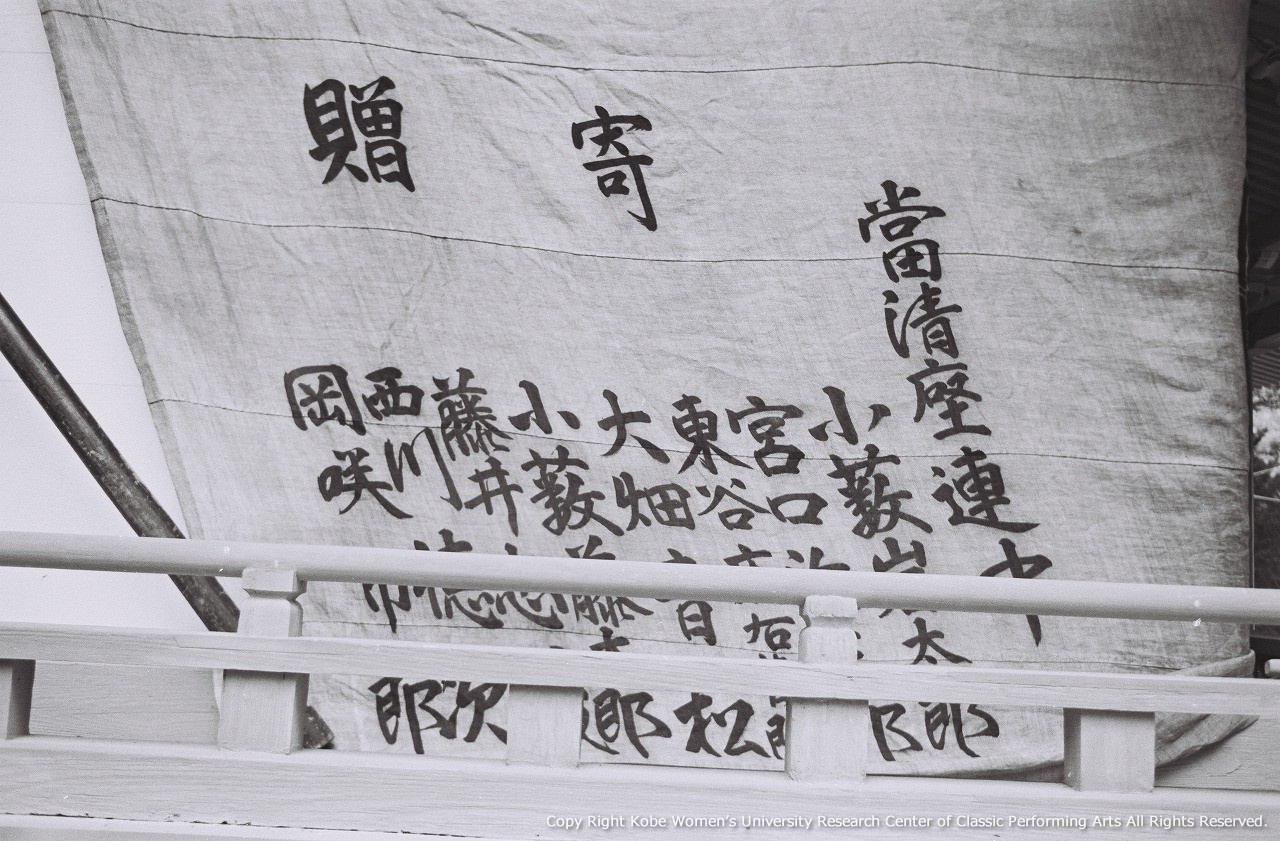 寄贈
當清座連中
小藪岩太郎
宮口
東谷
大畑音松
小藪藤
藤井
西川徳次
岡咲市郎
Copy Right Kobe Women's University Research Center of Classic Performing Arts All Rights Reserved.